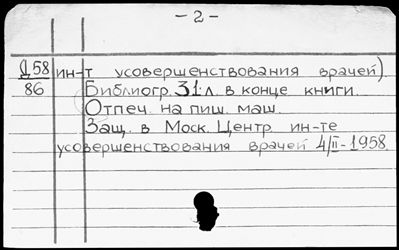 - 2 -
Д58 ин-т усовершенствования врачей)
86 Библиогр. 31 л. в конце книги.
Отпеч. на пиш. маш.
Защ. в Моск. Центр. ин-те
усовершенствования врачей 4/II-1958.